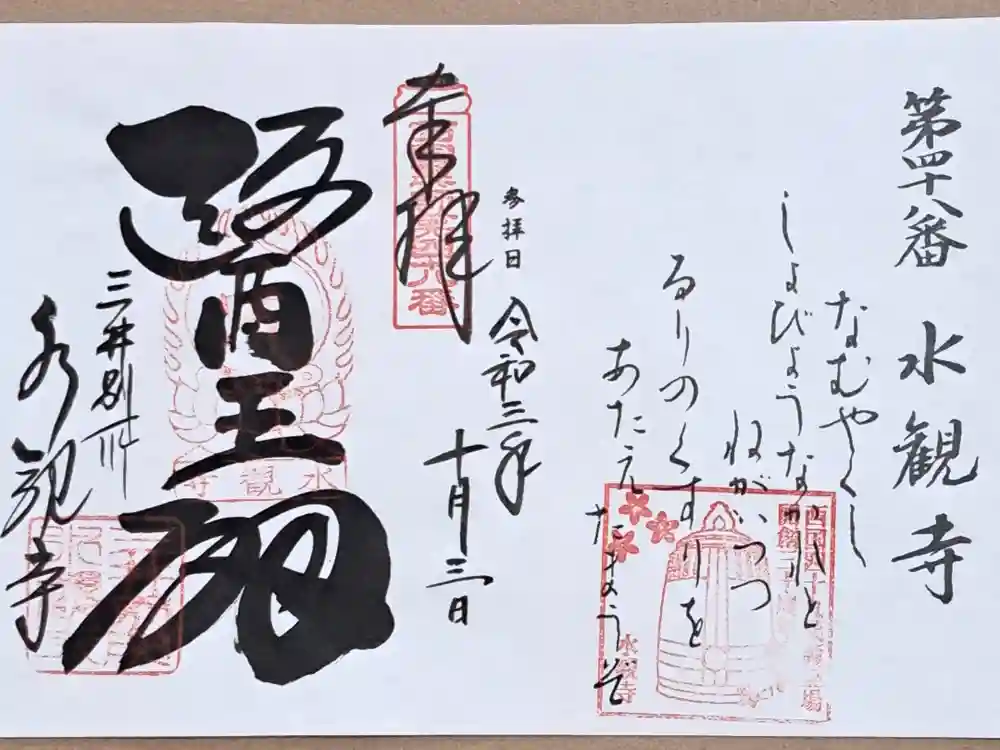 第四十八番 水観寺
なむやくし
しょびょうなかれと
ねがいつつ
るりのくすりを
あたえたまうぞ
水観寺
参拝日 令和三年
十月三日
奉拝
醫王殿
水觀寺
三井別所
水観寺